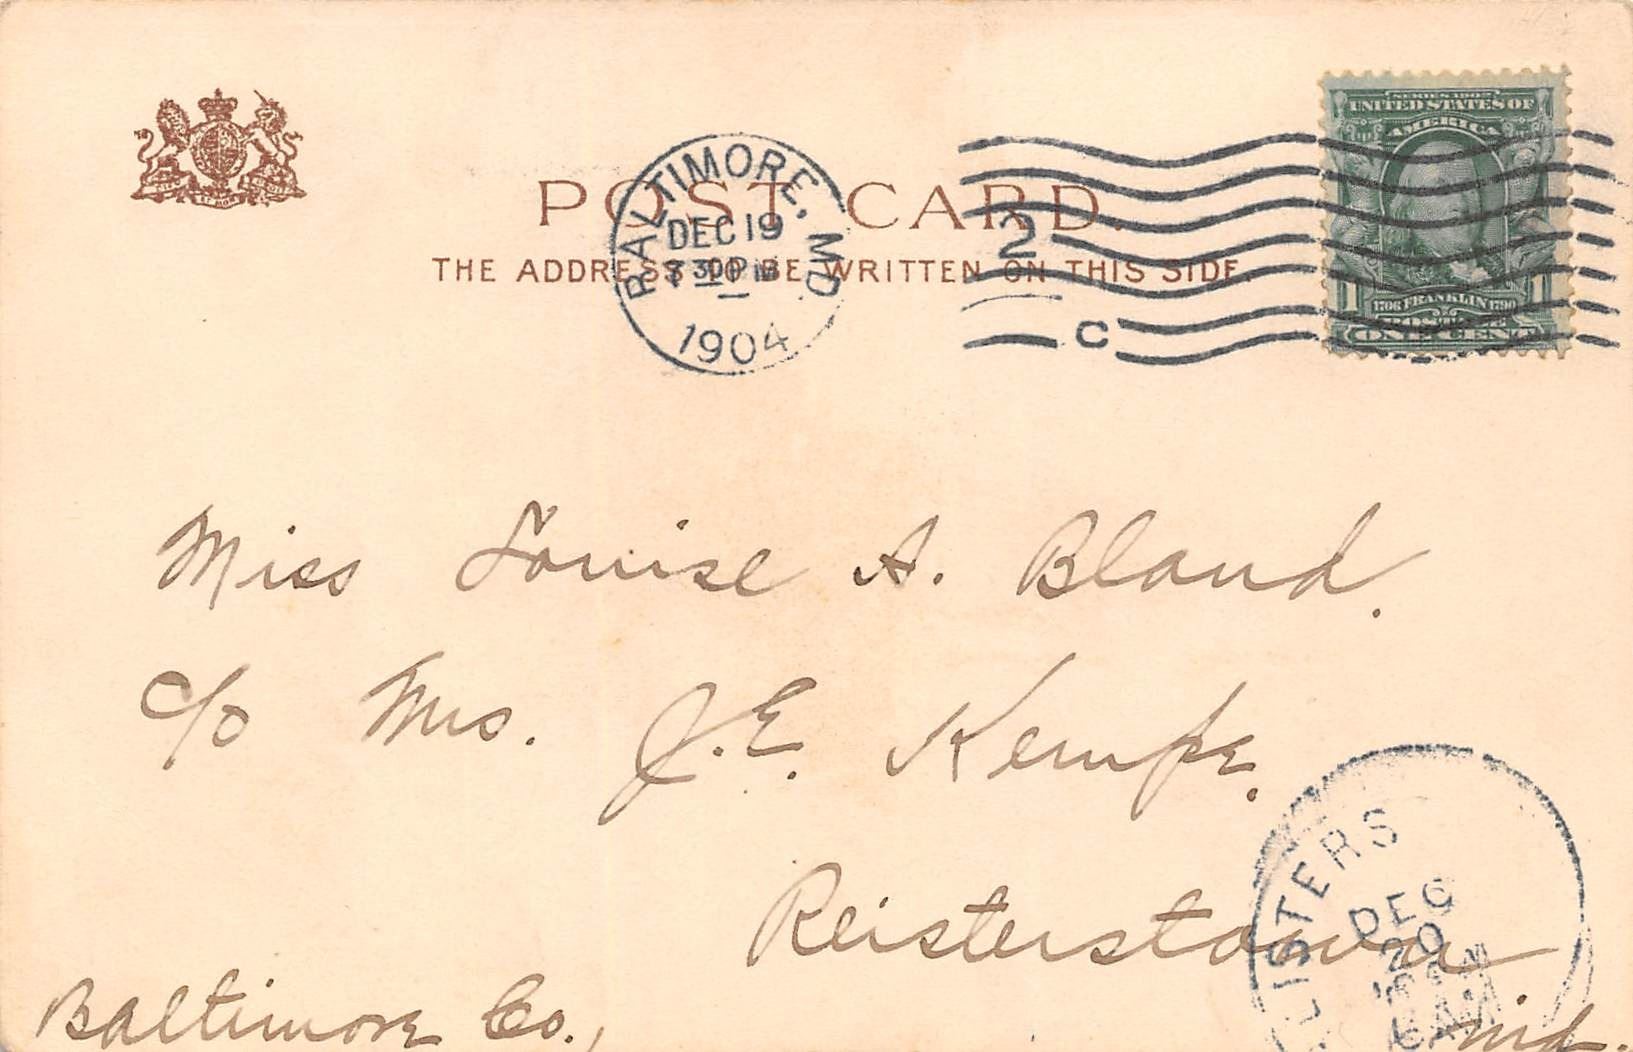 POST CARD.
THE ADDRESS TO BE WRITTEN ON THIS SIDE
BALTIMORE, MD.
DEC 19
7 30 P M
1904
2
C
SERIES 1902
UNITED STATES OF
AMERICA
1 1706 FRANKLIN 1790 1
POSTAGE
ONE CENT
Miss Louise A. Bland.
c/o Mrs. J. E. Kempe.
Reisterstown
Baltimore Co., Md.
ISTERS
DEC
20
AM